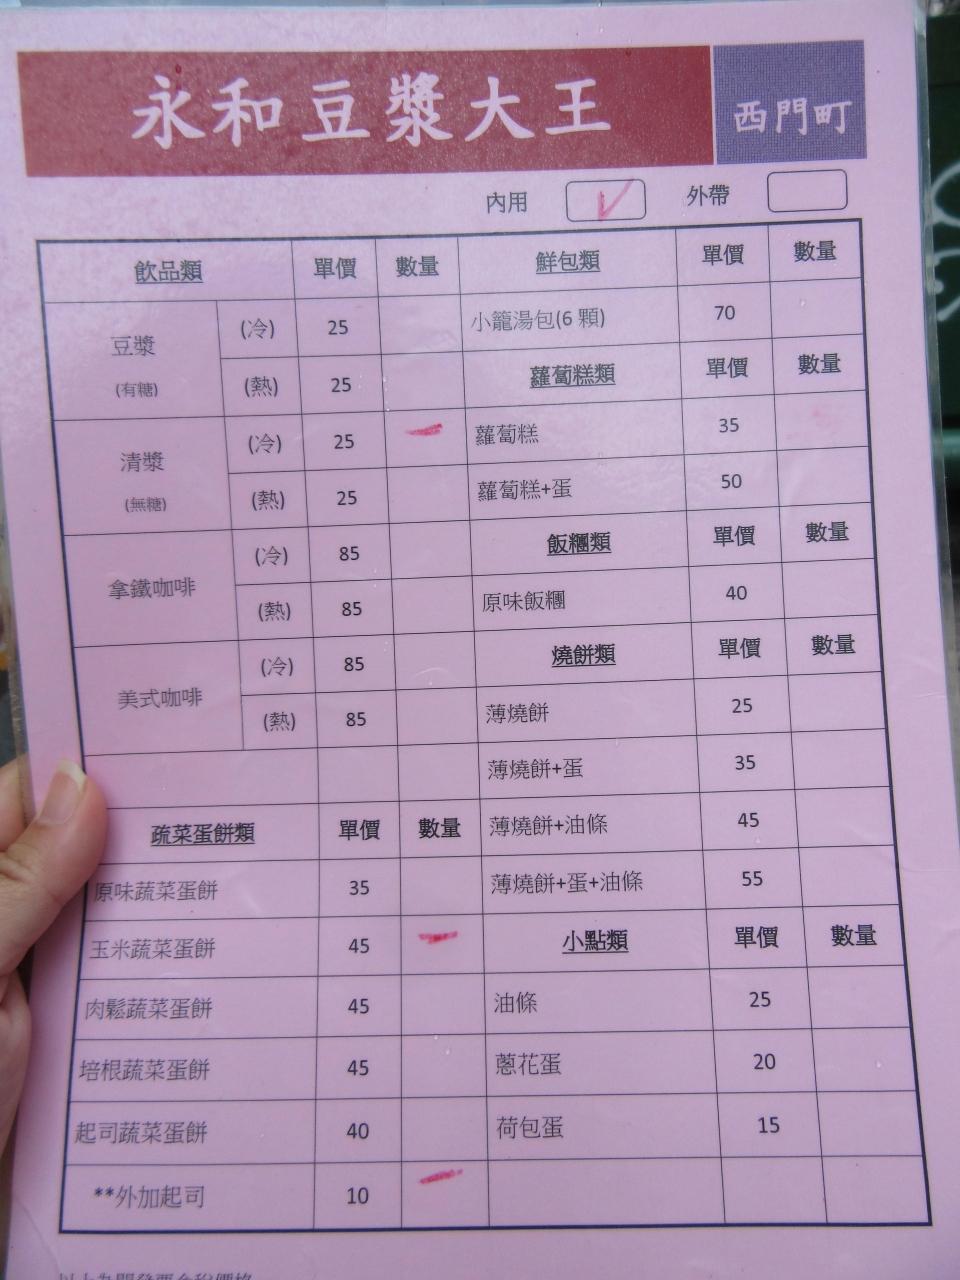 永和豆漿大王 西門町
內用 外帶
飲品類 單價 數量 鮮包類 單價 數量
豆漿 (有糖) (冷) 25 小籠湯包(6 顆) 70
(熱) 25 蘿蔔糕類 單價 數量
清漿 (無糖) (冷) 25 蘿蔔糕 35
(熱) 25 蘿蔔糕+蛋 50
拿鐵咖啡 (冷) 85 飯糰類 單價 數量
(熱) 85 原味飯糰 40
美式咖啡 (冷) 85 燒餅類 單價 數量
(熱) 85 薄燒餅 25
薄燒餅+蛋 35
疏菜蛋餅類 單價 數量 薄燒餅+油條 45
原味蔬菜蛋餅 35 薄燒餅+蛋+油條 55
玉米蔬菜蛋餅 45 小點類 單價 數量
肉鬆蔬菜蛋餅 45 油條 25
培根蔬菜蛋餅 45 蔥花蛋 20
起司蔬菜蛋餅 40 荷包蛋 15
**外加起司 10